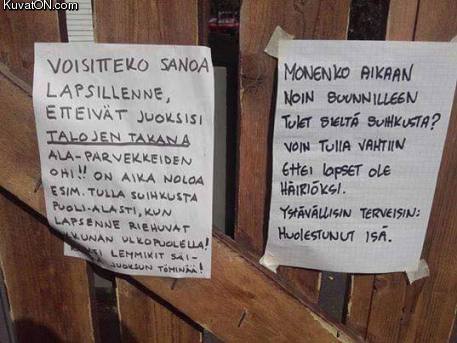 KuvatON.com
VOISITTEKO SANOA
LAPSILLENNE,
ETTEIVÄT JUOKSISI
TALOJEN TAKANA
ALA-PARVEKKEIDEN
OHI!! ON AIKA NOLOA
ESIM. TULLA SUIHKUSTA
PUOLI-ALASTI, KUN
LAPSENNE RIEHUVAT
IKKUNAN ULKOPUOLELLA!
LEMMIKIT SÄI-
JUOKSUN TÖMINÄÄ!
MONENKO AIKAAN
NOIN SUUNNILLEEN
TULET SIELTÄ SUIHKUSTA?
VOIN TULLA VAHTIIN
ETTEI LAPSET OLE
HÄIRIÖKSI.
YSTÄVÄLLISIN TERVEISIN:
HUOLESTUNUT ISÄ.